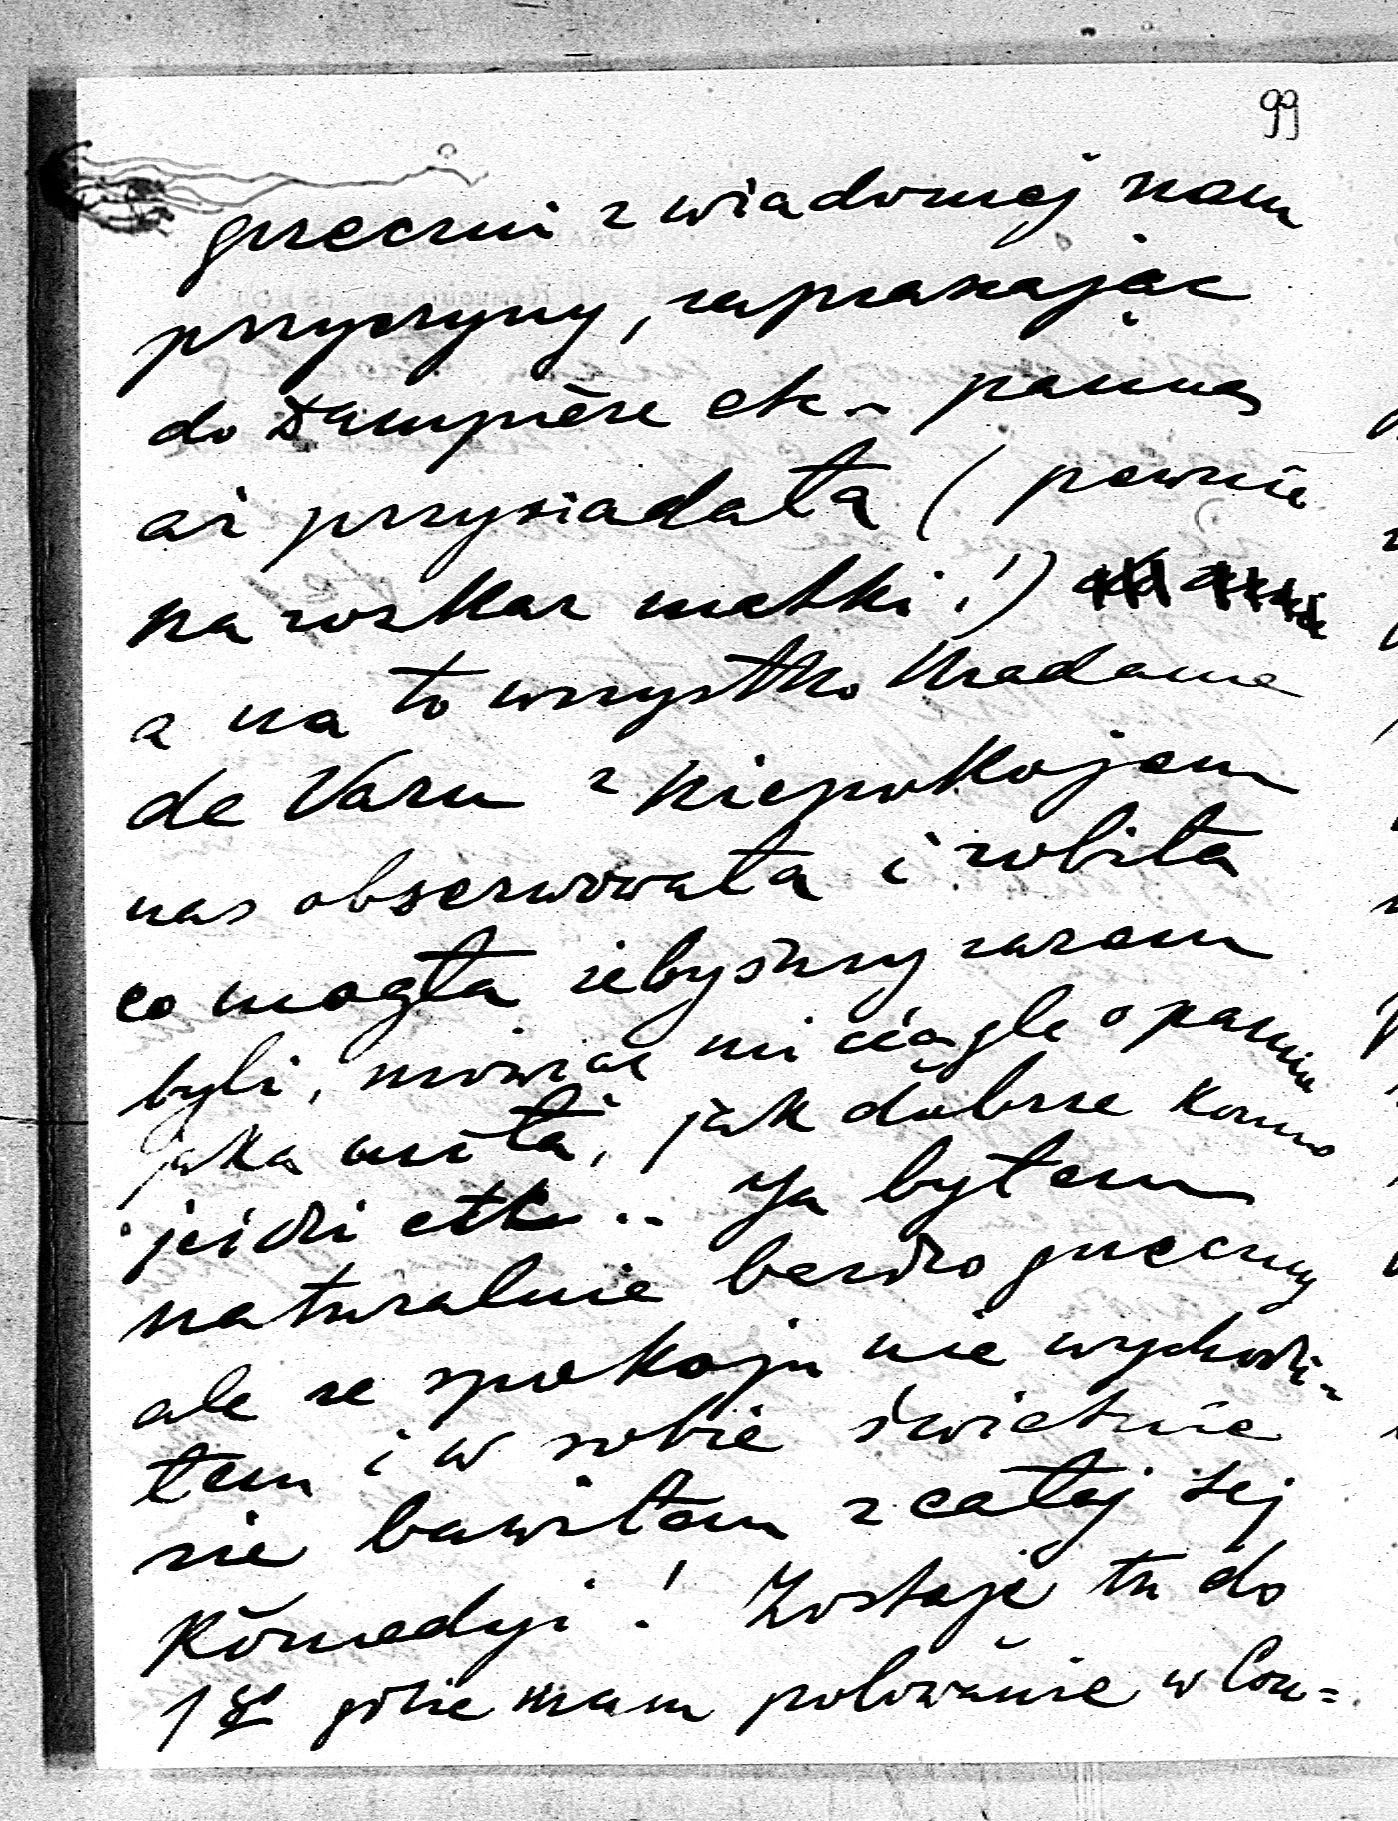 99
grzeczni z wiadomej nam
przyczyny, zapraszając
do Dampière etc. panna
aż przysiadała (pewnie
na rozkaz matki!)
a na to wszystko Madame
de Varu z niepokojem
nas obserwowała i robiła
co mogła żebyśmy razem
byli, mówiąc mi ciągle o pannie
jaka miła, jak dobrze konno
jeździ etc .. Ja byłem
naturalnie bardzo grzeczny
ale ze spokoju nie wychodzi=
łem i w sobie świetnie
się bawiłem z całej tej
Komedyi! Zostaję tu do
1go gdzie mam polowanie w Cou=